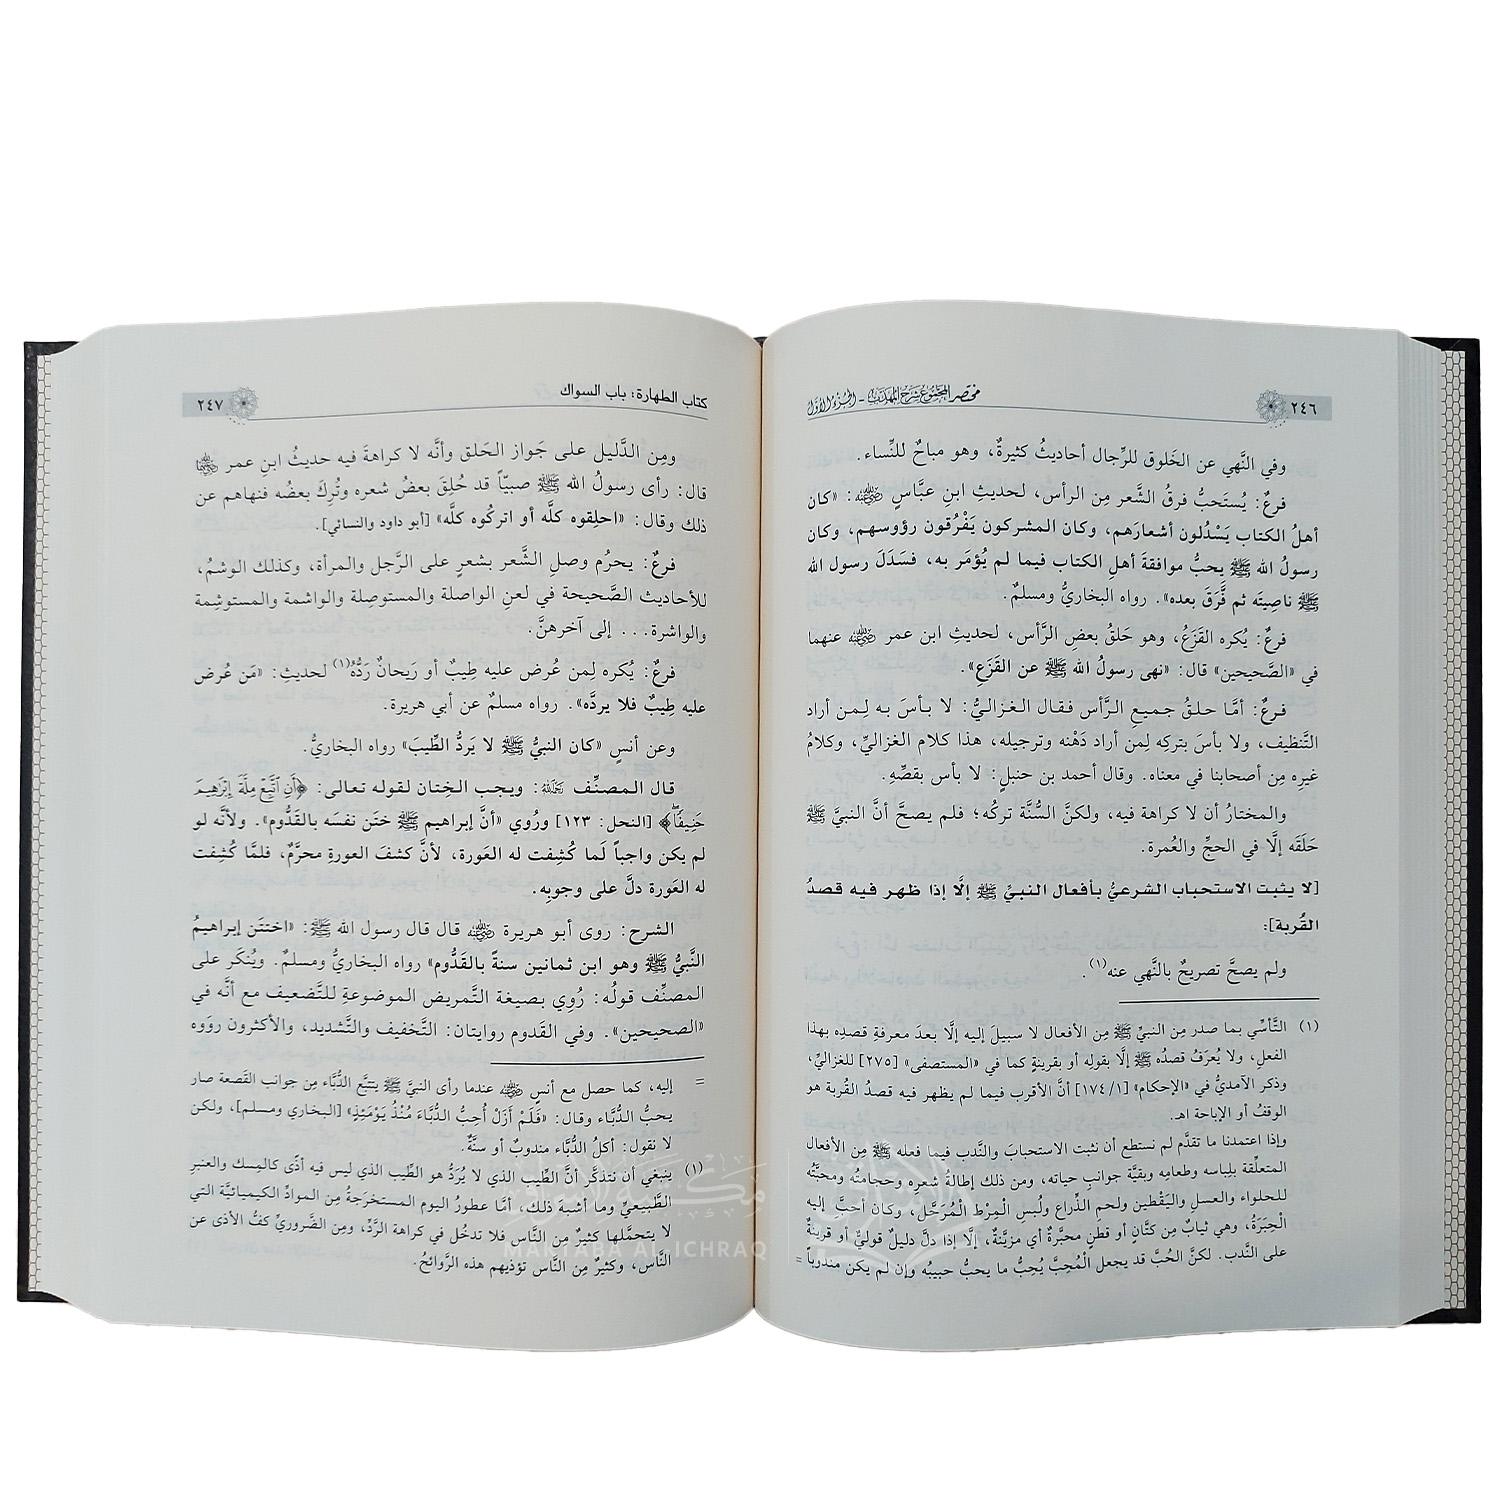 ٢٤٦
مختصر المجموع شرح المهذب - الجزء الأول
وفي النَّهي عن الخَلوق للرِّجال أحاديثُ كثيرةٌ، وهو مباحٌ للنِّساء.
فرعٌ: يُستَحبُّ فرقُ الشَّعر مِن الرأس، لحديثِ ابنِ عبَّاسٍ ﵁: «كان
أهلُ الكتاب يَسْدُلون أشعارَهم، وكان المشركون يَفْرُقون رؤوسهم، وكان
رسولُ الله ﷺ يحبُّ موافقةَ أهلِ الكتاب فيما لم يُؤمَر به، فسَدَلَ رسول الله
ﷺ ناصِيتَه ثم فَرَقَ بعده». رواه البخاريُّ ومسلمٌ.
فرعٌ: يُكره القَزَعُ، وهو حَلقُ بعضِ الرَّأس، لحديثِ ابن عمر ﵁ عنهما
في «الصَّحيحين» قال: «نهى رسولُ الله ﷺ عن القَزَعِ».
فرعٌ: أمَّا حلقُ جميعِ الرَّأس فقال الغزاليُّ: لا بأسَ به لِمن أراد
التَّنظيف، ولا بأسَ بتركِه لِمن أراد دَهْنه وترجيله، هذا كلام الغزاليِّ، وكلامُ
غيرِه مِن أصحابنا في معناه. وقال أحمد بن حنبلٍ: لا بأس بقصِّهِ.
والمختارُ أن لا كراهة فيه، ولكنَّ السُّنَّة تركُه؛ فلم يصحَّ أنَّ النبيَّ ﷺ
حَلَقَه إلَّا في الحجِّ والعُمرة.
[لا يثبت الاستحباب الشرعيُّ بأفعال النبيِّ ﷺ إلَّا إذا ظهر فيه قصدُ
القُربة]:
ولم يصحَّ تصريحٌ بالنَّهي عنه(١).
(١) التَّأسِّي بما صدر مِن النبيِّ ﷺ مِن الأفعال لا سبيلَ إليه إلَّا بعدَ معرفةِ قصدِه بهذا
الفعلِ، ولا يُعرَفُ قصدُه ﷺ إلَّا بقولِه أو بقرينةٍ كما في «المستصفى» [٢٧٥] للغزاليِّ،
وذكر الآمديُّ في «الإحكام» [١/١٧٤] أنَّ الأقرب فيما لم يظهر فيه قصدُ القُربة هو
الوقفُ أو الإباحة اهـ.
وإذا اعتمدنا ما تقدَّم لم نستطع أن نثبت الاستحبابَ والنَّدب فيما فعله ﷺ مِن الأفعال
المتعلِّقة بلِباسه وطعامِه وبقيَّة جوانبِ حياته، ومن ذلك إطالةُ شعرِه وحجامتُه ومحبَّتُه
للحلواء والعسلِ واليَقْطين ولحمِ الذِّراع ولُبسِ المِرْط الْمُرَحَّل، وكان أحبَّ إليه
الْحِبَرَةُ، وهي ثيابٌ مِن كتَّان أو قطنٍ محبَّرةٌ أي مزيَّنةٌ، إلَّا إذا دلَّ دليلٌ قوليٌّ أو قرينةٌ
على النَّدب. لكنَّ الحُبَّ قد يجعل الْمُحِبَّ يُحِبُّ ما يحبُّ حبيبُه وإن لم يكن مندوباً =
كتاب الطهارة: باب السواك
٢٤٧
ومِن الدَّليل على جَواز الحَلق وأنَّه لا كراهةَ فيه حديثُ ابنِ عمر ﵄
قال: رأى رسولُ الله ﷺ صبيّاً قد حُلِقَ بعضُ شعره وتُرِكَ بعضُه فنهاهم عن
ذلك وقال: «احلِقوه كلَّه أو اتركُوه كلَّه» [أبو داود والنسائي].
فرعٌ: يحرُم وصلِ الشَّعر بشعرٍ على الرَّجل والمرأة، وكذلك الوشمُ،
للأحاديث الصَّحيحة في لعنِ الواصلة والمستوصِلة والواشمة والمستوشِمة
والواشرة... إلى آخرهنَّ.
فرعٌ: يُكره لِمن عُرض عليه طِيبٌ أو رَيحانٌ رَدُّهُ(١) لحديثِ: «مَن عُرض
عليه طِيبٌ فلا يردَّه». رواه مسلمٌ عن أبي هريرة.
وعن أنسٍ «كان النبيُّ ﷺ لا يَردُّ الطِّيبَ» رواه البخاريُّ.
قال المصنِّف ﵀: ويجب الخِتان لقوله تعالى: ﴿أَنِ ٱتَّبِعْ مِلَّةَ إِبْرَٰهِيمَ
حَنِيفًا﴾ [النحل: ١٢٣] ورُوي «أنَّ إبراهيم ﷺ ختَن نفسَه بالقَدُّوم». ولأنَّه لو
لم يكن واجباً لَما كُشِفت له العَورة، لأنَّ كشفَ العورةِ محرَّمٌ، فلمَّا كُشِفت
له العَورة دلَّ على وجوبِه.
الشرح: روى أبو هريرة ﵁ قال قال رسول الله ﷺ: «اختتَن إبراهيمُ
النَّبيُّ ﷺ وهو ابن ثمانين سنةً بالقَدُّوم» رواه البخاريُّ ومسلمٌ. ويُنكَر على
المصنِّف قولُه: رُوِي بصيغة التَّمريض الموضوعةِ للتَّضعيف مع أنَّه في
«الصحيحين». وفي القَدوم روايتان: التَّخفيف والتَّشديد، والأكثرون روَوه
= إليه، كما حصل مع أنسٍ ﵁ عندما رأى النبيَّ ﷺ يتتبَّع الدُّبَّاء مِن جوانب القَصعة صار
يحبُّ الدُّبَّاء وقال: «فَلَمْ أَزَلْ أُحِبُّ الدُّبَّاءَ مُنْذُ يَوْمَئِذٍ» [البخاري ومسلم]، ولكن
لا نقول: أكلُ الدُّبَّاء مندوبٌ أو سنَّةٌ.
(١) ينبغي أن نتذكَّر أنَّ الطِّيب الذي لا يُردُّ هو الطِّيب الذي ليس فيه أذًى كالمِسك والعنبرِ
الطَّبيعيِّ وما أشبهَ ذلك، أمَّا عطورُ اليوم المستخرَجةُ مِن الموادِّ الكيميائيَّة التي
لا يتحمَّلها كثيرٌ مِن النَّاس فلا تدخُل في كراهة الرَّدِّ، ومِن الضَّروريِّ كفُّ الأذى عن
النَّاس، وكثيرٌ مِن النَّاس تؤذيهم هذه الرَّوائحُ.
مكتبة الإشراق
MAKTABA AL ICHRAQ